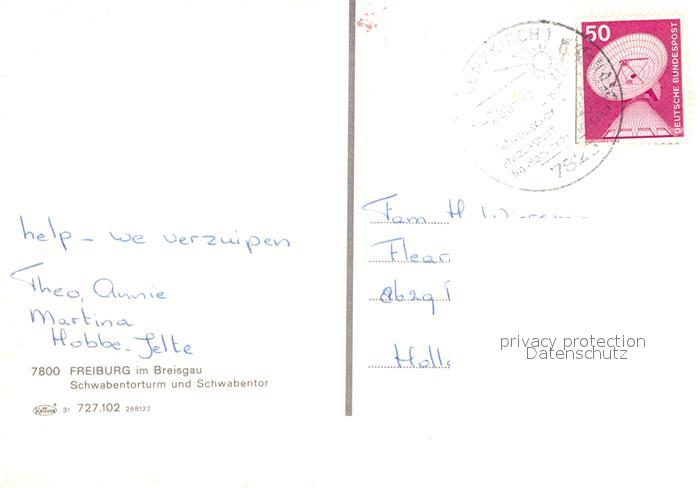 help - we verzuipen
Theo, Annie
Martina
Hobbe-Jelte
7800 FREIBURG im Breisgau
Schwabentorturm und Schwabentor
31 727.102 268122
LENZKIRCH 1
7825
50
DEUTSCHE BUNDESPOST
Fam H
Flear
8629
Holl
privacy protection
Datenschutz